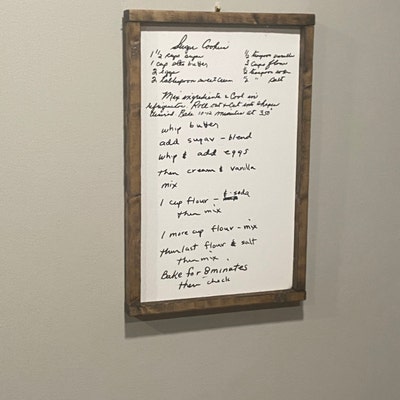 Sugar Cookies
1 1/2 cups sugar
1 cup oleo butter
2 eggs
2 tablespoon sweet cream
1/2 teaspoon vanilla
3 cups flour
1/2 teaspoon soda
1/2 " salt
Mix ingredients & Cool in
refrigerator. Roll out & Cut into shapes
desired. Bake 10-12 minutes at 350
whip butter
add sugar - blend
whip & add eggs
then cream & vanilla
mix
1 cup flour - & soda
then mix
1 more cup flour - mix
then last flour & salt
then mix.
Bake for 8 minutes
then check